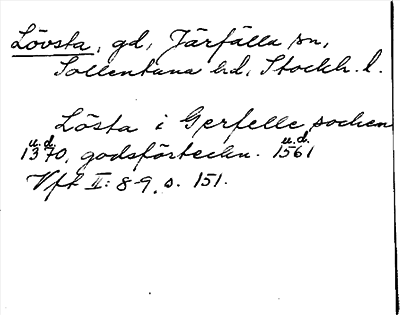 Lövsta, gd, Järfälla sn,
Sollentuna hd, Stockh. l.
Lösta i Gerfelle socken
u.d. u.d.
1370, godsförteckn. 1561
Vft II: 8-9, s. 151.